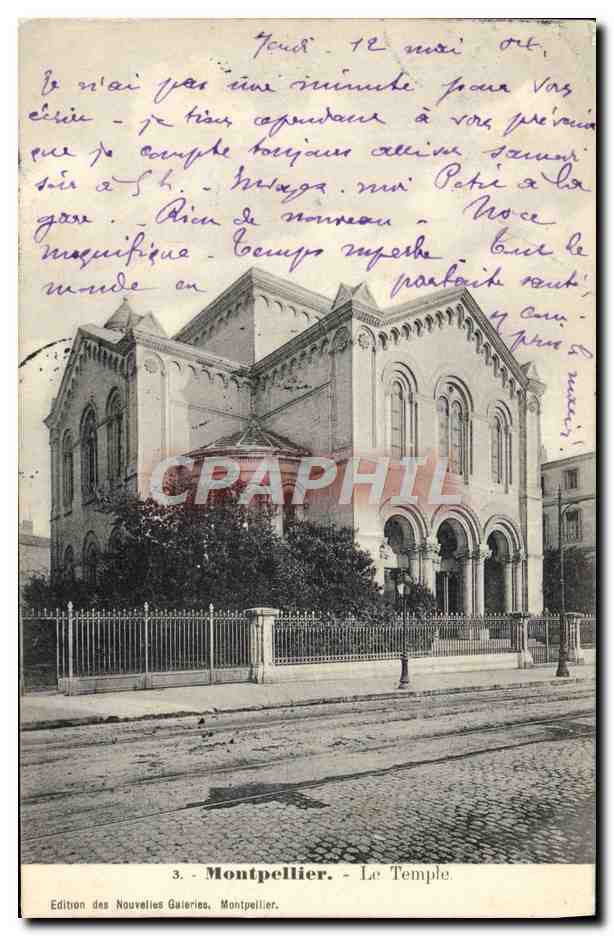 Jeudi 12 mai
Je n'ai pas une minute pour vous
écrire - je tiens cependant à vous prévenir
que je compte toujours arriver samedi
soir à 5 h. moi Petit à la
gare. - Rien de nouveau - Noce
magnifique - Temps superbe - Tout le
monde en parfaite santé,
CPARPHIL
3. - Montpellier. - Le Temple.
Edition des Nouvelles Galeries, Montpellier.